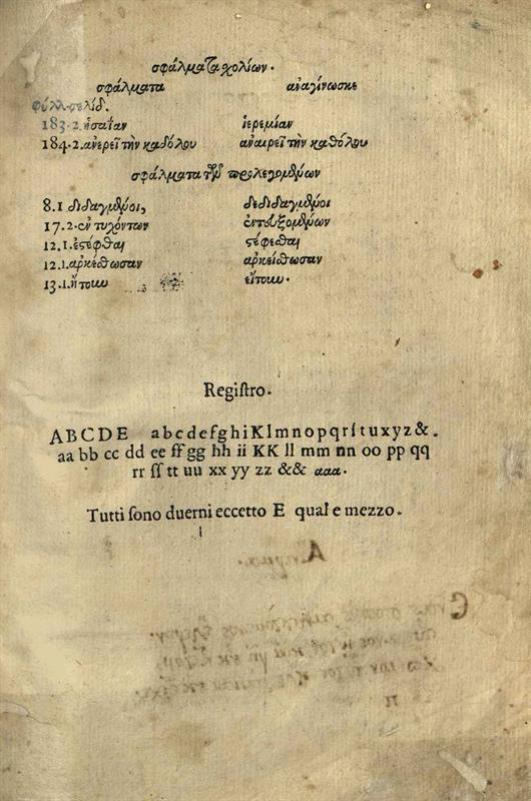 σφάλματα σχολίων.
σφάλματα ἀναγίνωσκε
φύλλ. σελίδ.
183.2. ἠσαΐαν ἱερεμίαν
184.2. ἀνερεῖ τὴν καδόλου ἀναιρεῖ τὴν καθόλου
σφάλματα τῶν προλεγομένων
8.1 διδαγμένοι, δεδιδαγμένοι
17.2. ἐντυχόντων ἐντευξομένων
12.1. ἐςέφθαι ςέφεσθαι
12.1. ἀρκέσθωσαν ἀρκείσθωσαν
13.1. ἤτουν εἴτουν.
Regiſtro.
ABCDE abcdefghiKlmnopqrſtuxyz&.
aa bb cc dd ee ff gg hh ii KK ll mm nn oo pp qq
rr ſſ tt uu xx yy zz && aaa.
Tutti ſono duerni eccetto E qual e mezzo.